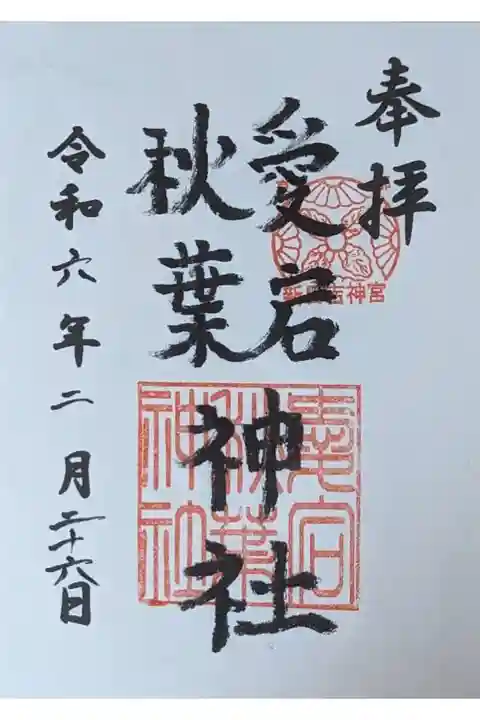 奉拝
新日吉神宮
愛宕
秋葉
神社
愛宕
秋葉
神社
令和六年二月二十六日